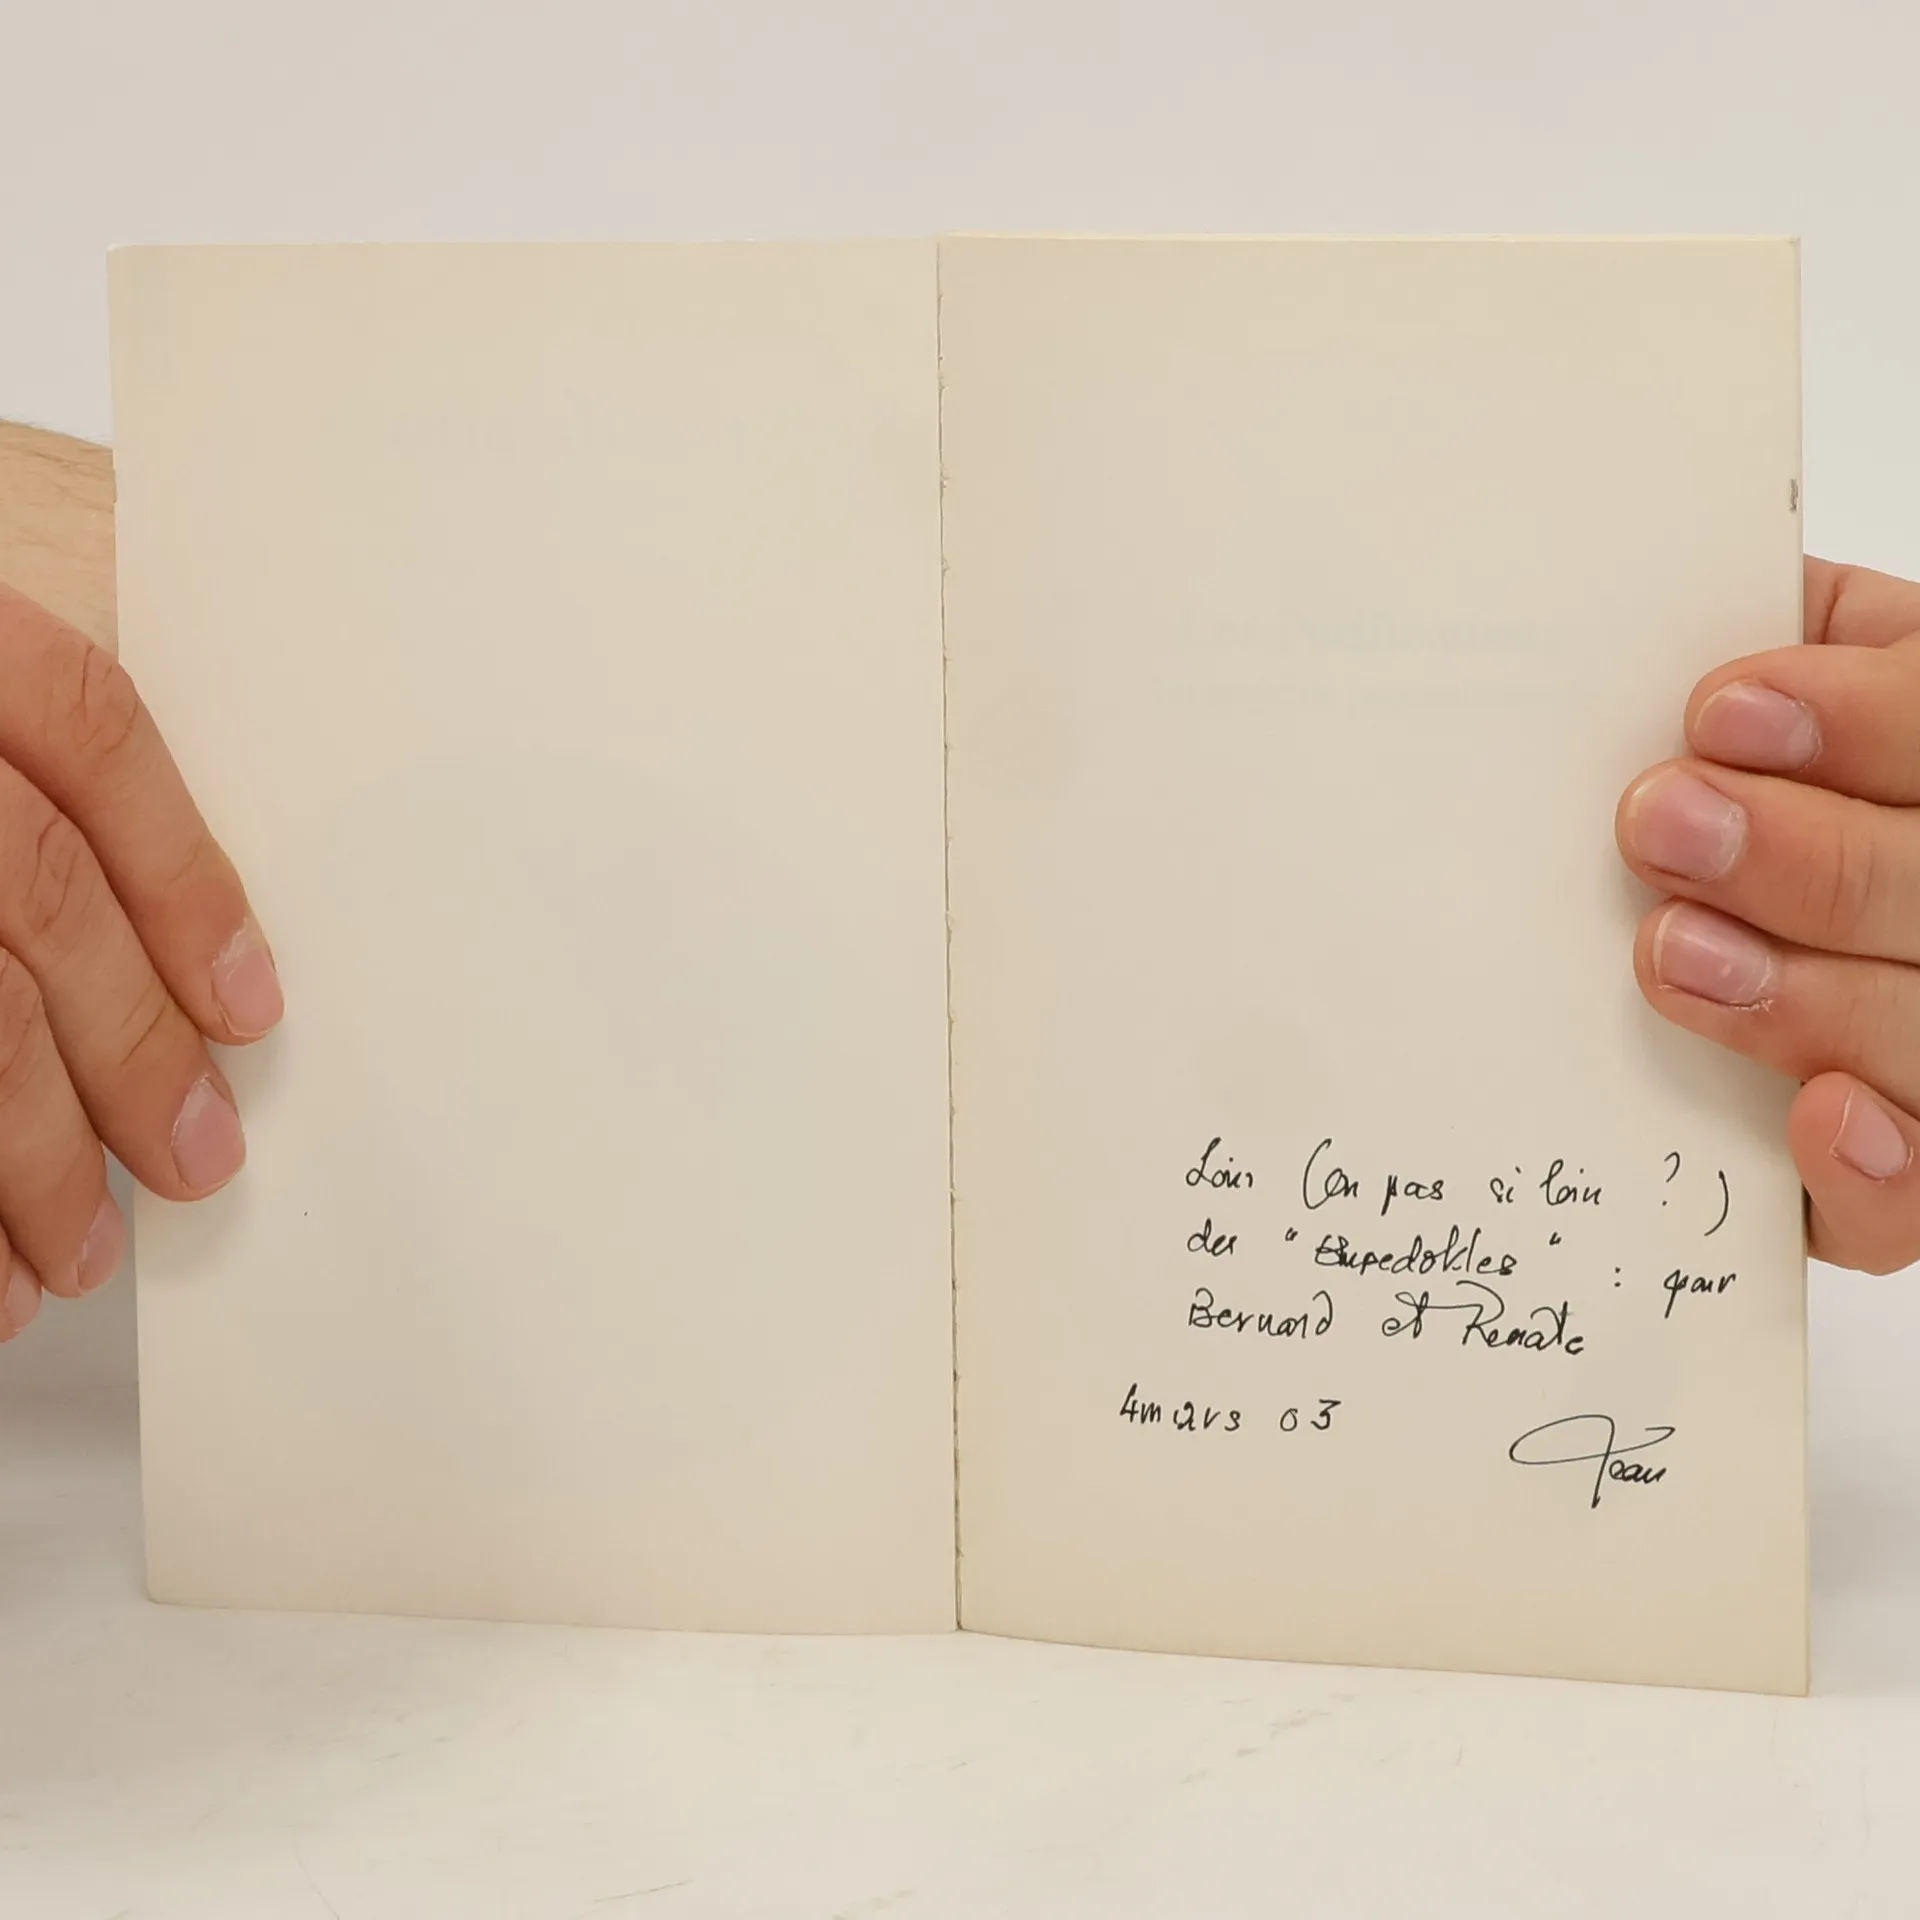 Loin (ou pas si loin ?)
des "Empedokles" : pour
Bernard et Renate
4 mars 03
Jean